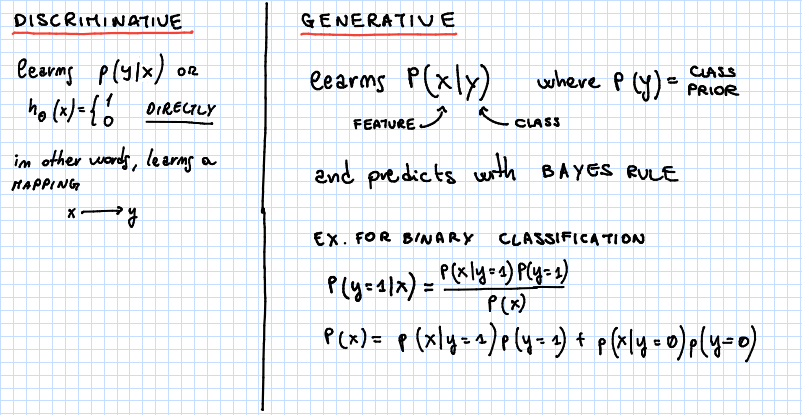 DISCRIMINATIVE
learns p(y|x) OR
h_θ(x) = { 1 0 DIRECTLY
in other words, learns a
MAPPING
x ⟶ y
GENERATIVE
learns P(x|y) where P(y) = CLASS PRIOR
FEATURE CLASS
and predicts with BAYES RULE
EX. FOR BINARY CLASSIFICATION
P(y=1|x) = P(x|y=1) P(y=1)
P(x)
P(x) = p(x|y=1) p(y=1) + p(x|y=0) p(y=0)